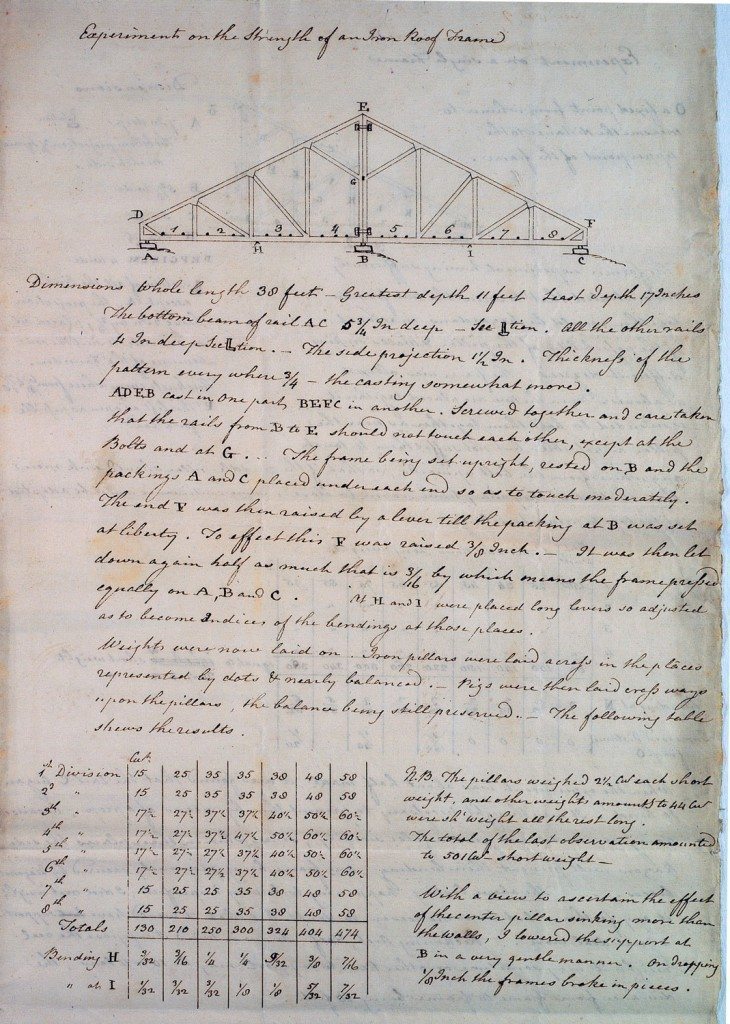 Experiments on the Strength of an Iron Roof Frame
E
G
D
F
1 2 3 4 5 6 7 8
A H B I C
Dimensions Whole length 38 feet – Greatest depth 11 feet Least depth 17 Inches
The bottom beam of rail AC 5 3/4 In deep – Sec L tion. All the other rails
4 In deep Sec L tion. – The side projection 1 1/2 In. Thickneſs of the
pattern every where 3/4 – the casting somewhat more.
ADEB cast in one part, BEFC in another. Screwed together and care taken
that the rails from B to E should not touch each other, except at the
Bolts and at G ... The frame being set upright, rested on B and the
packings A and C placed under each end so as to touch moderately.
The end F was then raised by a lever till the packing at B was set
at liberty. To effect this F was raised 3/8 Inch. – It was then let
down again half as much that is 3/16 by which means the frame preſsed
equally on A, B and C. At H and I were placed long levers so adjusted
as to become Indices of the bendings at those places.
Weights were now laid on. Iron pillars were laid acroſs in the places
represented by dots & nearly balanced. – Pigs were then laid croſs ways
upon the pillars, the balance being still preserved. – The following table
shews the results.
Cwt.
1st Division 15 25 35 35 38 48 58
2d " 15 25 35 35 38 48 58
3th " 17 1/2 27 1/2 37 1/2 37 1/2 40 1/2 50 1/2 60 1/2
4th " 17 1/2 27 1/2 37 1/2 47 1/2 50 1/2 60 1/2 60 1/2
5th " 17 1/2 27 1/2 27 1/2 37 1/2 40 1/2 50 1/2 60 1/2
6th " 17 1/2 27 1/2 27 1/2 37 1/2 40 1/2 50 1/2 60 1/2
7th " 15 25 25 35 38 48 58
8th " 15 25 25 35 38 48 58
Totals 130 210 250 300 324 404 474
Bending H 3/32 3/16 1/4 1/4 9/32 3/8 7/16
" at I 1/32 3/32 3/32 1/8 1/8 5/32 7/32
N.B. The pillars weighed 2 1/2 Cwt each short
weight, and other weights amount to 44 Cwt
were sht weight all the rest long.
The total of the last observation amounted
to 501 Cwt short weight –
With a view to ascertain the effect
of the center pillar sinking more than
the walls, I lowered the support at
B in a very gentle manner. On dropping
1/8 Inch the frames broke in pieces.